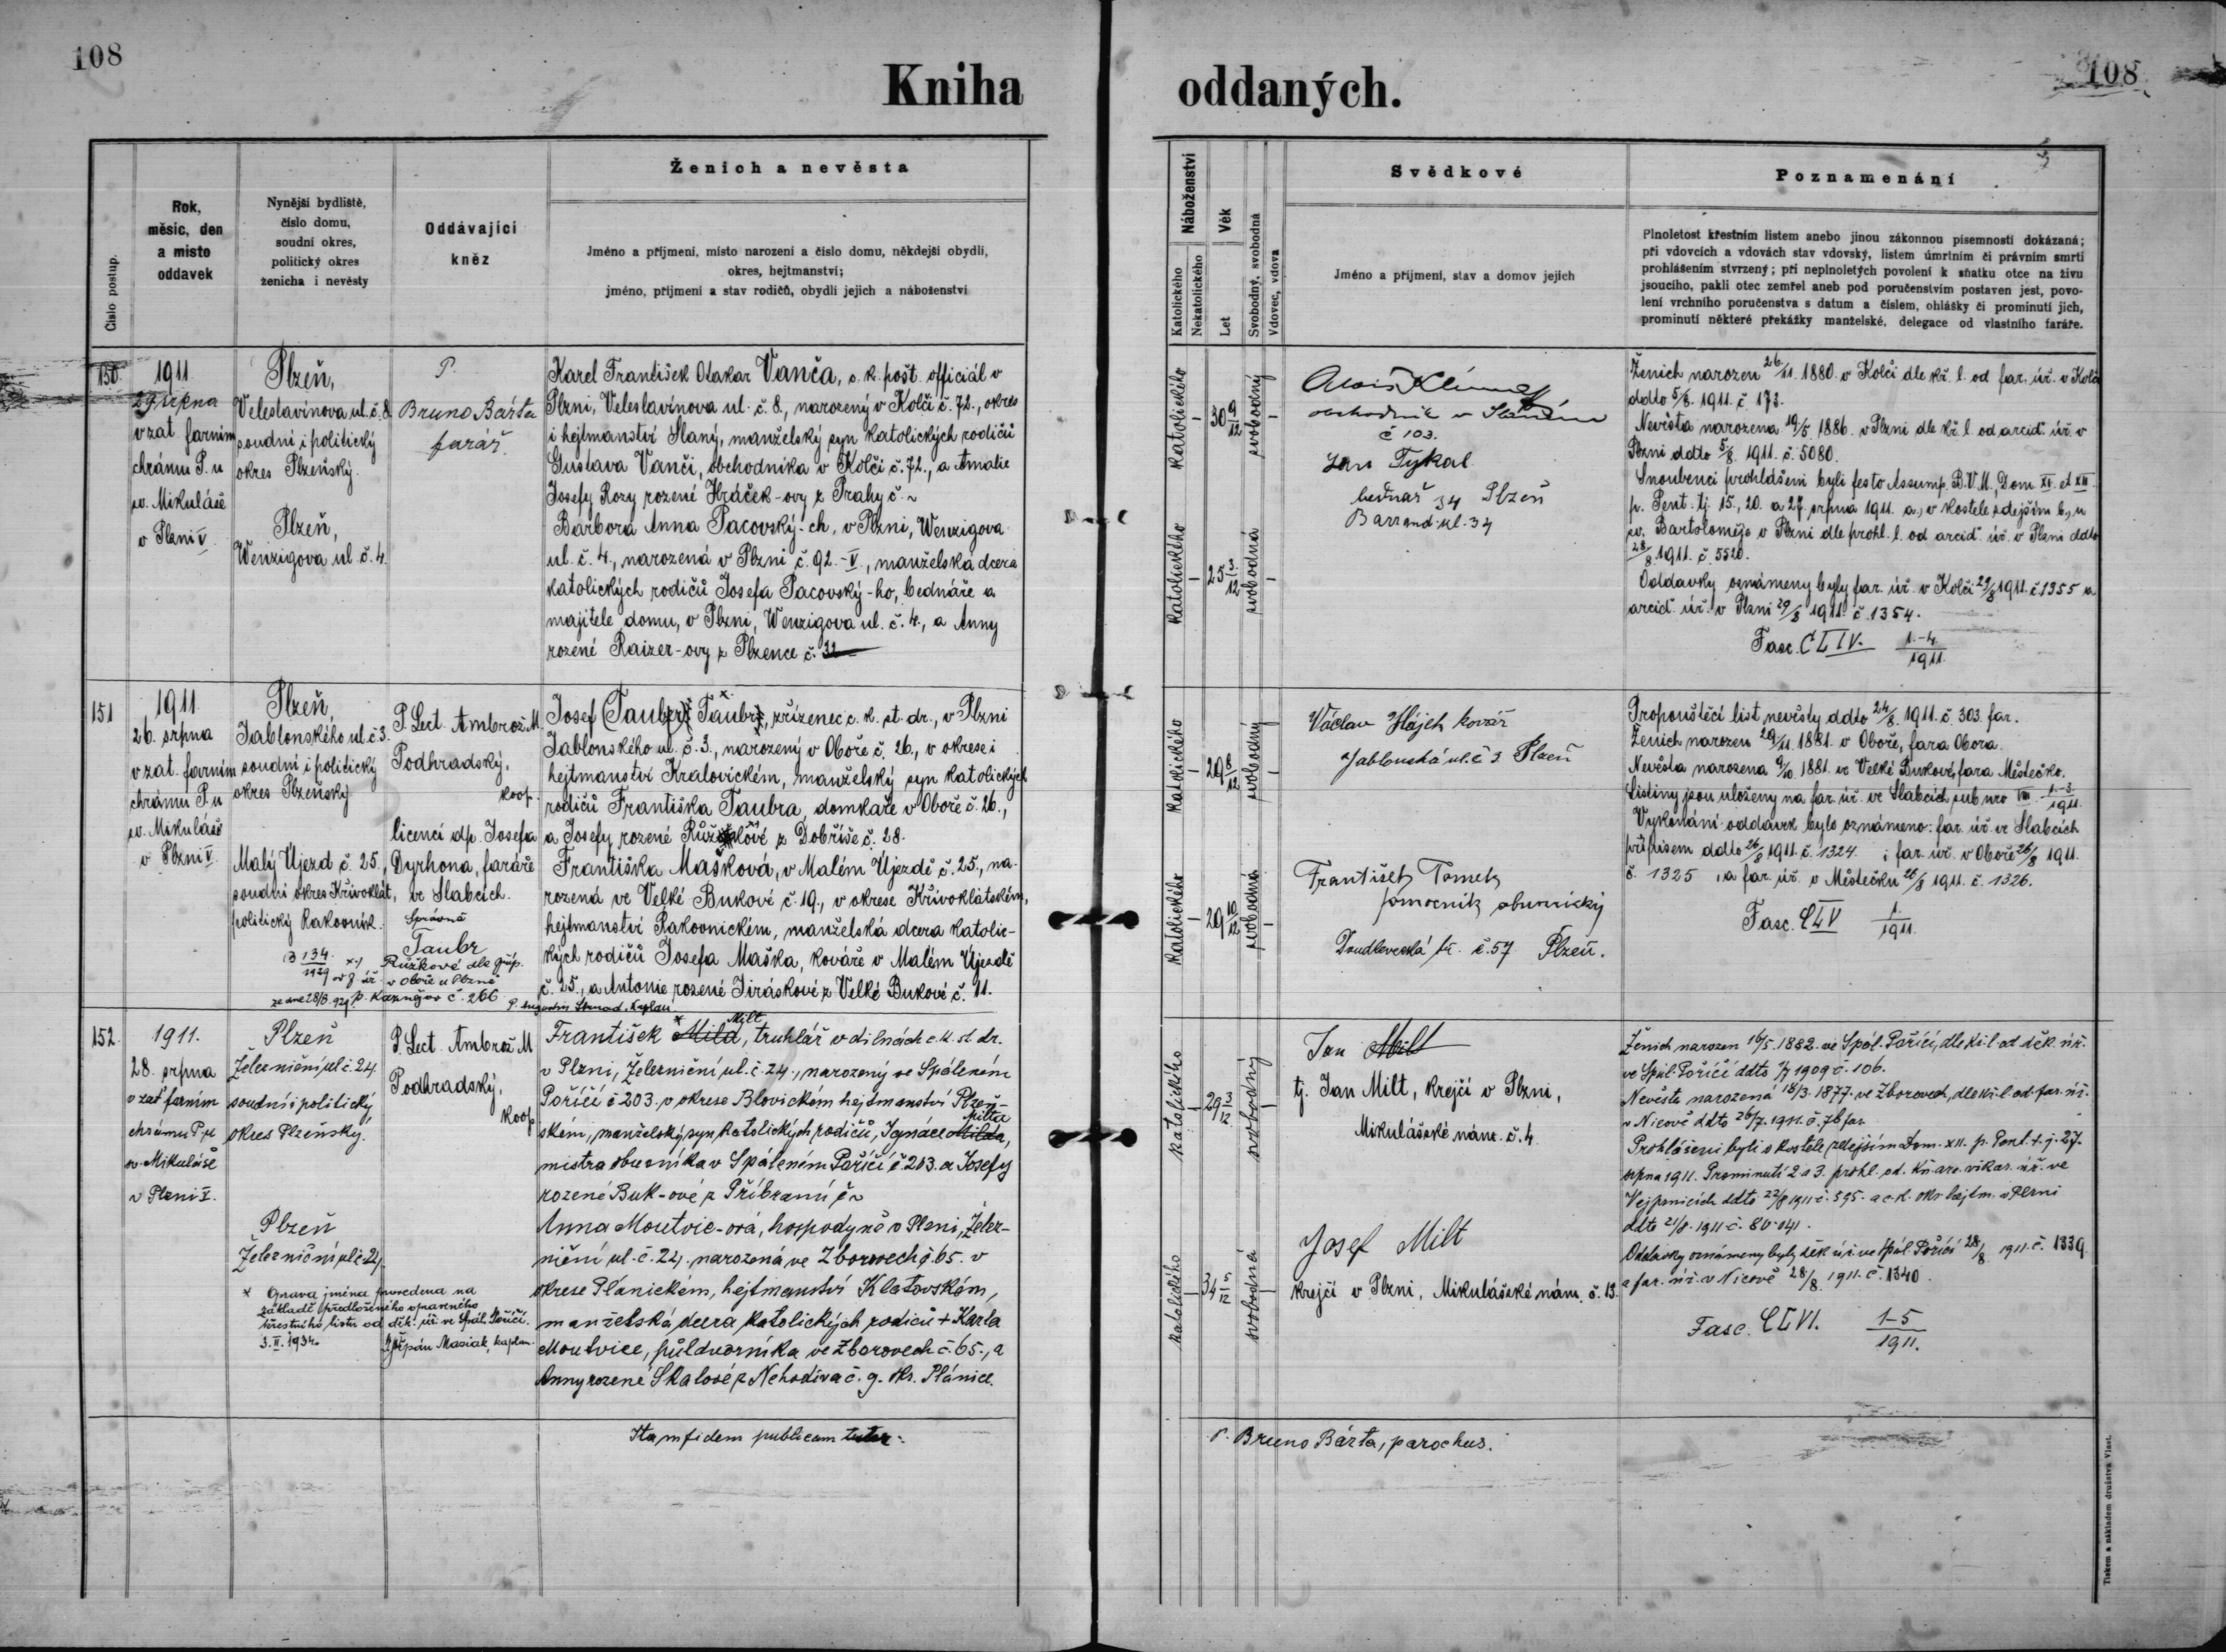 108
Kniha oddaných.
108
Číslo postup.
Rok,
měsíc, den
a místo
oddavek
Nynější bydliště,
číslo domu,
soudní okres,
politický okres
ženicha i nevěsty
Oddávající
kněz
Ženich a nevěsta
Jméno a příjmení, místo narození a číslo domu, někdejší obydlí,
okres, hejtmanství;
jméno, příjmení a stav rodičů, obydlí jejich a náboženství
Náboženství
Katolického
Nekatolického
Věk
Let
Svobodný, svobodná
Vdovec, vdova
Svědkové
Jméno a příjmení, stav a domov jejich
Poznamenání
Plnoletost křestním listem anebo jinou zákonnou písemností dokázaná;
při vdovcích a vdovách stav vdovský, listem úmrtním či právním smrti
prohlášením stvrzený; při neplnoletých povolení k sňatku otce na živu
jsoucího, pakli otec zemřel aneb pod poručenstvím postaven jest, povo-
lení vrchního poručenstva s datum a číslem, ohlášky či prominutí jich,
prominutí některé překážky manželské, delegace od vlastního faráře.
150.
1911
29 srpna
v zat. farním
chrámu P. u
sv. Mikuláše
v Plzni V.
Plzeň,
Veleslavínova ul. č. 8
soudní i politický
okres Plzeňský.
Plzeň,
Wenzigova ul. č. 4.
P.
Bruno Bárta
farář.
Karel František Otakar Vanča, c. k. pošt. officiál v
Plzni, Veleslavínova ul. č. 8., narozený v Kolči č. 72., okres
i hejtmanství Slaný, manželský syn katolických rodičů
Gustava Vanči, obchodníka v Kolči č. 72., a Amalie
Josefy Rozy rozené Hráček-ovy z Prahy č. ~
Barbora Anna Pacovský-ch, v Plzni, Wenzigova
ul. č. 4., narozená v Plzni č. 92.-V., manželská dcera
katolických rodičů Josefa Pacovský-ho, bednáře a
majitele domu, v Plzni, Wenzigova ul. č. 4., a Anny
rozené Raizer-ovy z Plzence č. 32
katolického
–
30 9/12
svobodný
–
katolického
–
25 3/12
svobodná
–
Alois Klíma
obchodník v
č 103.
Jan Tykal
bednář 34 Plzeň
Barrand. ul. 34
Ženich narozen 26/11. 1880. v Kolči dle kř. l. od far. úř. v Kolči
ddto 5/8. 1911. č. 173.
Nevěsta narozena 19/5. 1886. v Plzni dle kř. l. od arcid. úř. v
Plzni ddto 5/8. 1911. č. 5080.
Snoubenci prohlášeni byli festo Assump. B.V.M., Dom. XI. et XII.
p. Pent. tj. 15., 20. a 27. srpna 1911. a, v kostele zdejším b, u
sv. Bartoloměje v Plzni dle prohl. l. od arcid. úř. v Plzni ddto
28/8. 1911. č. 5520.
Oddavky oznámeny byly far. úř. v Kolči 29/8 1911. č. 1355 a
arcid. úř. v Plzni 29/8 1911. č. 1354.
Fasc. CLIV. 1.-4./1911.
151
1911
26. srpna
v zat. farním
chrámu P. u
sv. Mikuláše
v Plzni V.
Plzeň,
Jablonského ul. č. 3.
soudní i politický
okres Plzeňský
Malý Újezd č. 25.,
soudní okres Křivoklát,
politický Rakovník.
P. Lect. Ambrož. M.
Podhradský,
koop.
licencí dp. Josefa
Dyrhona, faráře
ve Slabcích.
Správně
Taubr
Růžkové dle příp.
134./1929 od f. úř. v Oboře u Plzně
ze dne 28/8. 929 p. Kaznějov č. 266
Josef (Tauber) Taubr, zřízenec c. k. st. dr., v Plzni
Jablonského ul. č. 3., narozený v Oboře č. 26., v okrese i
hejtmanství Kralovickém, manželský syn katolických
rodičů Františka Taubra, domkaře v Oboře č. 26.,
a Josefy rozené Růžkové z Dobříše č. 28.
Františka Mašková, v Malém Újezdě č. 25., na-
rozená ve Velké Bukové č. 19., v okrese Křivoklátském,
hejtmanství Rakovnickém, manželská dcera katolic-
kých rodičů Josefa Maška, kováře v Malém Újezdě
č. 25., a Antonie rozené Jiráskové z Velké Bukové č. 11.
katolického
–
29 8/12
svobodný
–
katolického
–
29 10/12
svobodná
–
Václav Hájek kovář
Jablonská ul. č 3 Plzeň
František Tomek
pomocník obuvnický
Doudlevecká tř. č. 57 Plzeň.
Propouštěcí list nevěsty ddto 24/8. 1911. č. 303. far.
Ženich narozen 29/11. 1881. v Oboře, fara Obora.
Nevěsta narozena 9/10. 1881. ve Velké Bukové, fara Městečko.
Listiny jsou uloženy na far. úř. ve Slabcích sub nro VIII 1-3/1911.
Vykonání oddavek bylo oznámeno: far. úř. ve Slabcích
přípisem ddto 26/8 1911. č. 1324. i far. úř. v Oboře 26/8 1911.
č. 1325 , a far. úř. v Městečku 26/8 1911. č. 1326.
Fasc. CLV 1./1911.
152.
1911.
28. srpna
v zat. farním
chrámu P. u
sv. Mikuláše
v Plzni V.
Plzeň
Železniční ul. č. 24.
soudní i politický
okres Plzeňský.
Plzeň
Železniční ul. č. 24.
P. Lect. Ambrož M
Podhradský,
koop
* Oprava jména provedena na
základě předloženého opraveného
křestního listu od děk. úř. ve Spál. Poříčí.
3. II. 1934. Štěpán Masiak, kaplan
František * Mild Milt, truhlář v dílnách c. k. st. dr.
v Plzni, Železniční ul. č. 24., narozený ve Spáleném
Poříčí č 203. v okrese Blovickém hejtmanství Plzeň-
ském, manželský syn katolických rodičů, Ignáce Milda, Milta
mistra obuvníka v Spáleném Poříčí č 203. a Josefy
rozené Buk-ové z Příbrami č ~
Anna Moutvic-ová, hospodyně v Plzni, Želez-
niční ul. č. 24. narozená ve Zborovech č. 65. v
okrese Plánickém, hejtmanství Klatovském,
manželská dcera katolických rodičů + Karla
Moutvice, půldvorníka ve Zborovech č. 65., a
Anny rozené Skalové z Nehodiva č. 9. okr. Plánice.
katolického
–
29 3/12
svobodný
–
katolického
–
34 5/12
svobodná
–
Jan Milt
tj. Jan Milt, krejčí v Plzni,
Mikulášské nám. č. 4.
Josef Milt
krejčí v Plzni, Mikulášské nám. č. 13.
Ženich narozen 16/5. 1882. ve Spál. Poříčí, dle kř. l. od děk. úř.
ve Spál. Poříčí ddto 1/7 1909 č. 106.
Nevěsta narozená 18/3. 1877. ve Zborovech, dle kř. l. od far. úř.
v Nicově ddto 26/7. 1911. č. 76 far.
Prohlášeni byli v kostele zdejším Dom. XII. p. Pent. t. j. 27.
srpna 1911. Prominutí 2 a 3. prohl. od. kn. arc. vikar. úř. ve
Vejprnicích ddto 22/8 1911 č. 595. a c. k. okr. hejtm. v Plzni
ddto 21/8. 1911 č. 80.041.
Oddavky oznámeny byly děk. úř. ve Spál. Poříčí 28/8 1911. č. 1339.
a far. úř. v Nicově 28/8. 1911. č. 1340.
Fasc. CLVI. 1-5/1911.
Ita in fidem publicam
P. Bruno Bárta, parochus.
Tiskem a nákladem družstva Vlast.